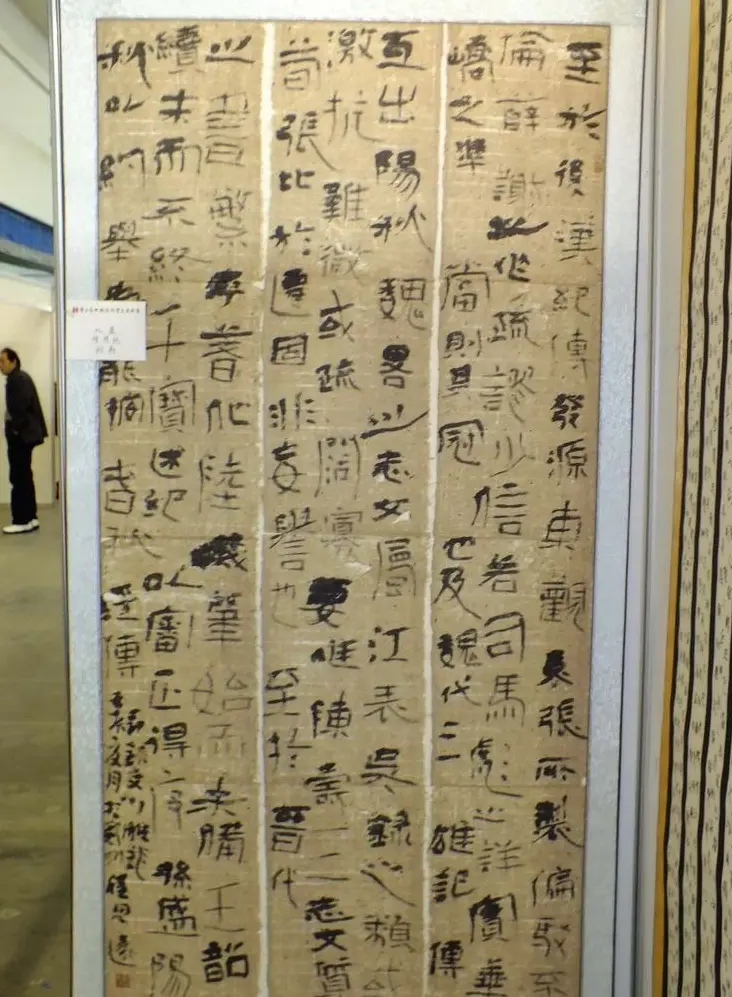 至於後漢紀傳發源東觀袁張所製偏駁不
倫薛謝之作疏謬少信若司馬彪之詳實華
嶠之準當則其冠也及魏代三雄記傳
互出陽秋魏畧之屬江表吳錄之類或
激抗難徵或疏闊寡要唯陳壽三志文質
荀張比於遷固非妄譽也至於晉代
之書繁乎著作陸機肇始而未備王韶
續末而不終干寶述紀以審正得序孫盛陽
秋以約舉為能摘春秋經傳
錄文心雕龍